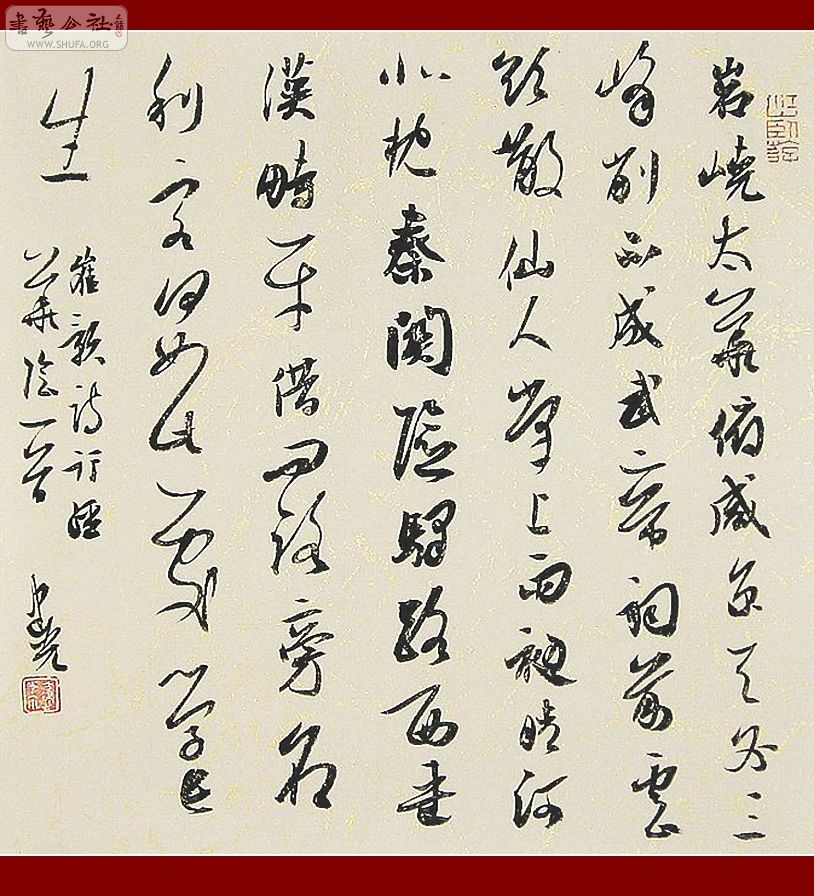 書藝公社
WWW.SHUFA.ORG
岧嶢太華俯咸京天外三
峰削不成武帝祠前雲
欲散仙人掌上雨初晴河
北枕秦關險驛路西連
漢畤平借問路旁名
利客何如此處學長
生
崔顥詩行經
華陰一首